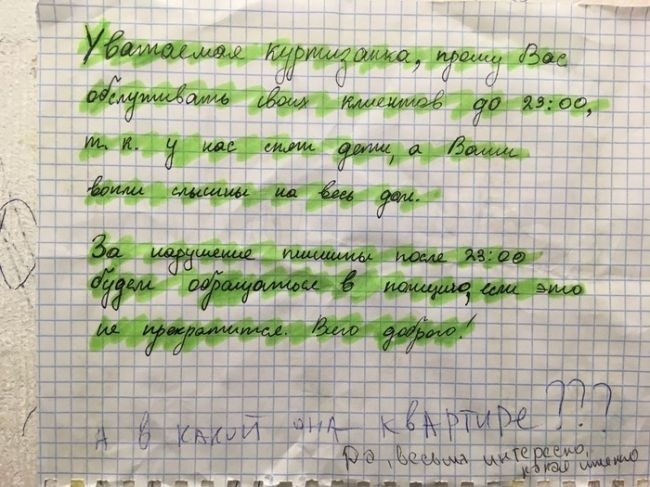 Уважаемая куртизанка, прошу Вас
обслуживать своих клиентов до 23:00,
т.к. у нас спят дети, а Ваши
вопли слышны на весь дом.
За нарушение тишины после 23:00
будем обращаться в полицию, если это
не прекратится. Всего доброго!
А в какой она квартире???
Да, весьма интересно,
какой именно